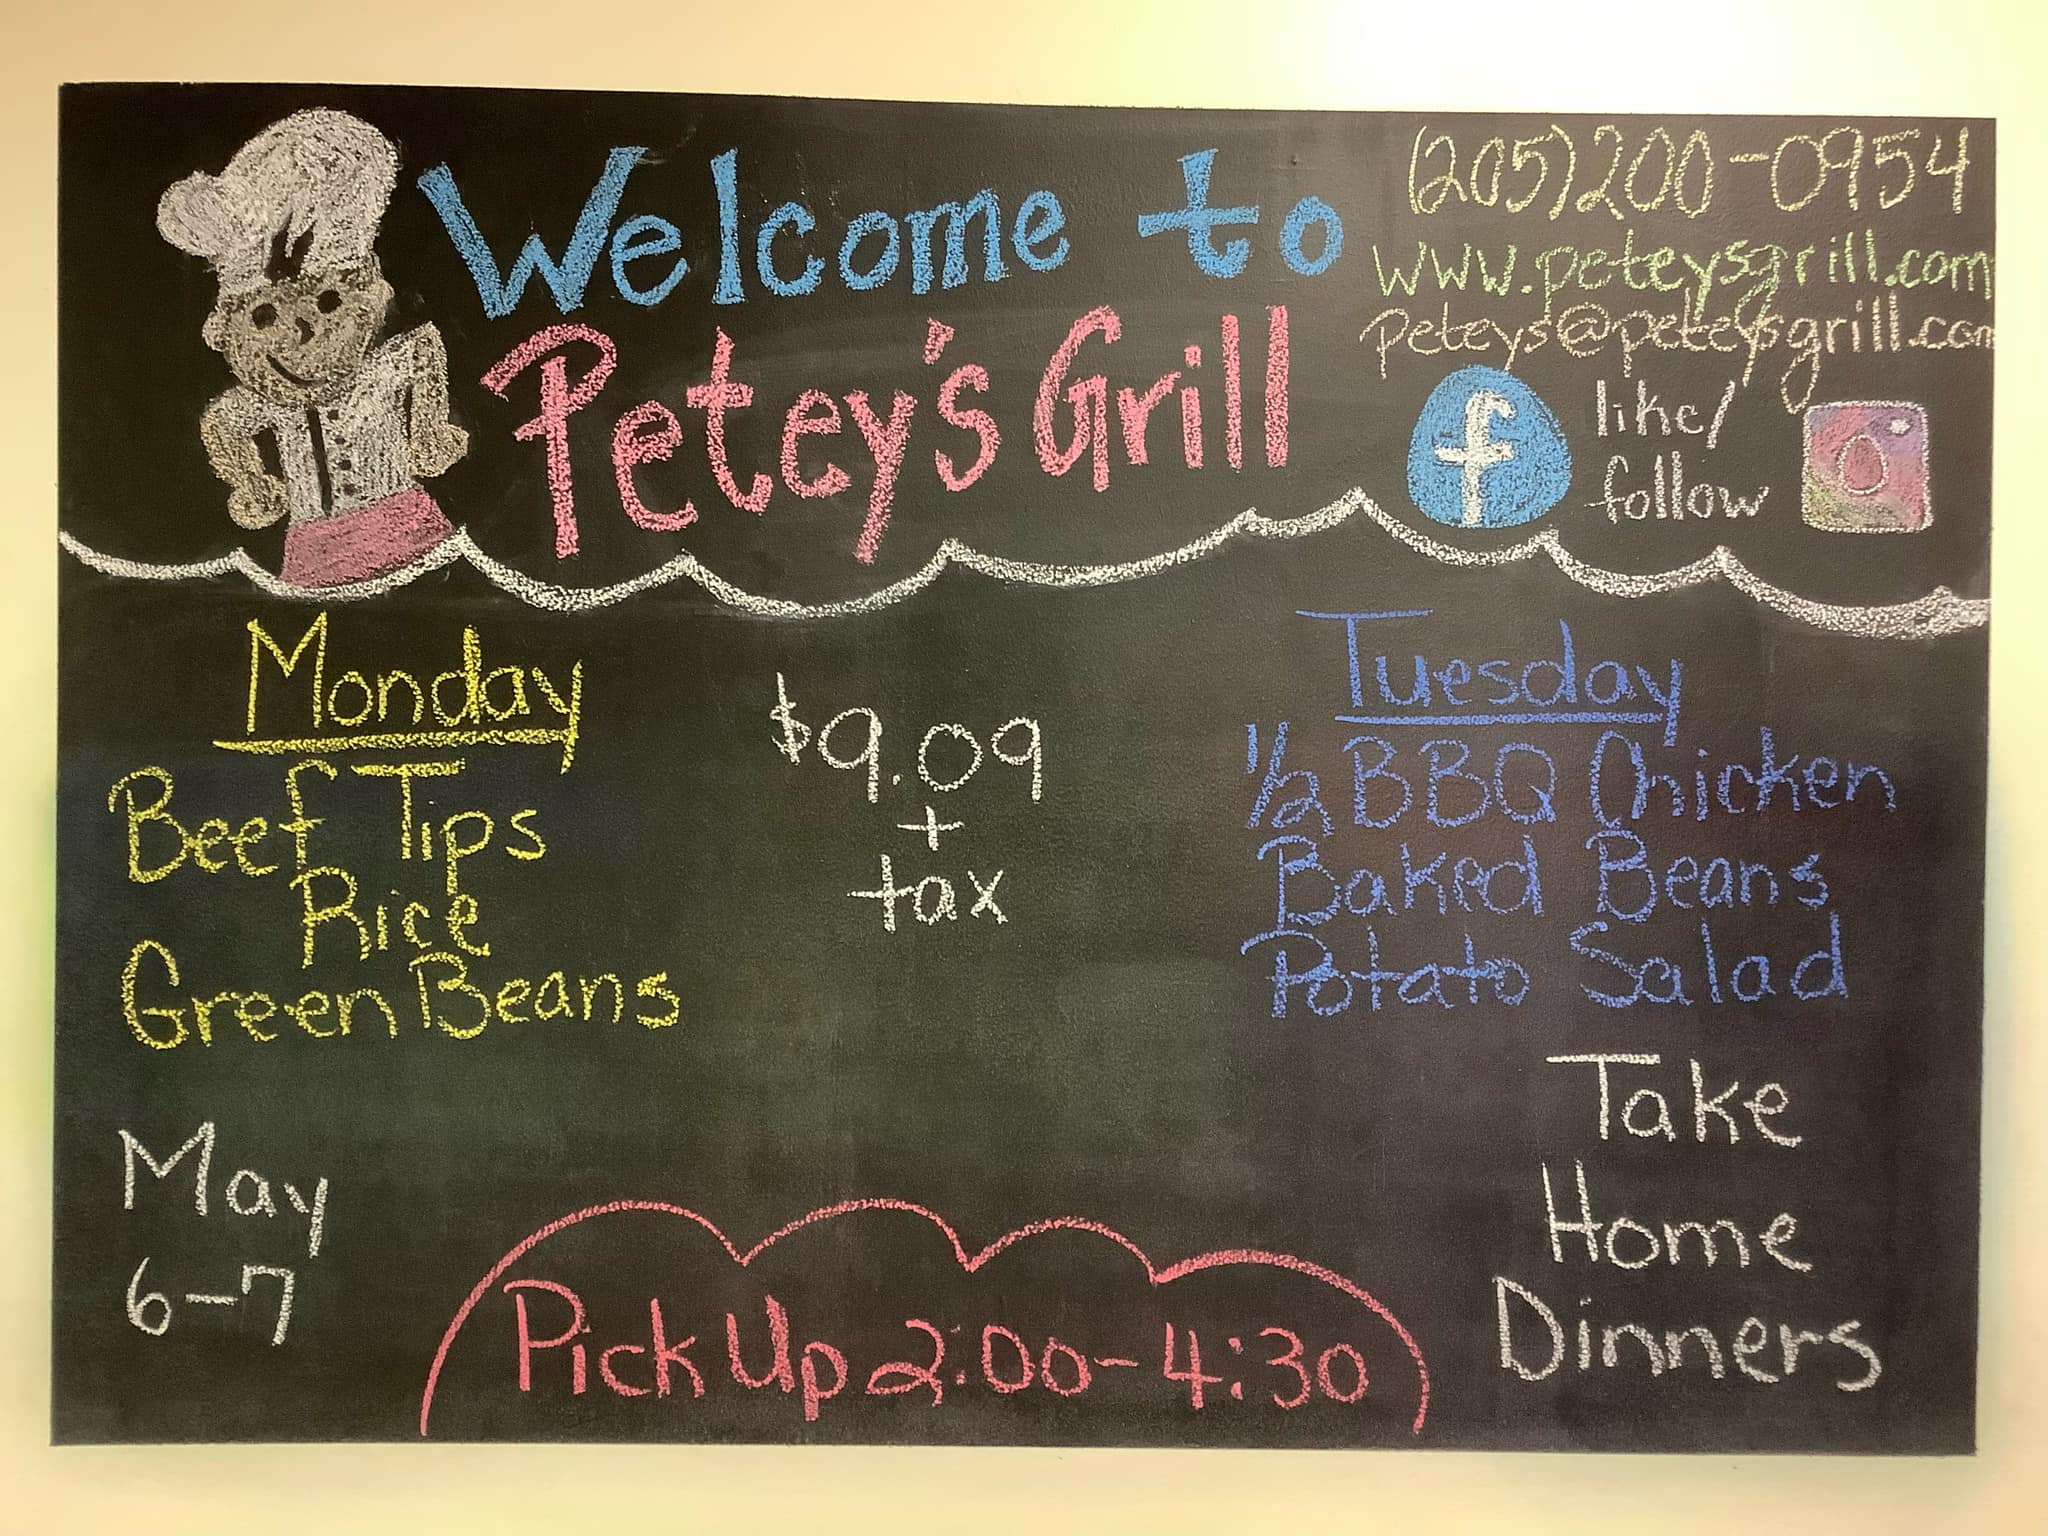 Welcome to
Petey's Grill
(205)200-0954
www.peteysgrill.com
peteys@peteysgrill.com
f
like/
follow
Monday
Beef Tips
Rice
Green Beans
$9.09
+
tax
Tuesday
1/2 BBQ Chicken
Baked Beans
Potato Salad
May
6-7
Pick Up 2:00-4:30
Take
Home
Dinners